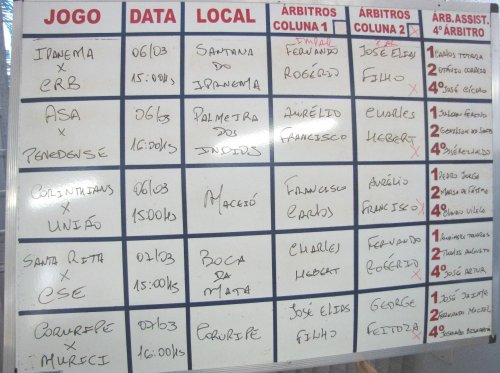 JOGO DATA LOCAL ÁRBITROS COLUNA 1 ÁRBITROS COLUNA 2 ÁRB. ASSIST. 4º ÁRBITRO
IPANEMA X CRB
06/03 15:00HS
SANTANA DO IPANEMA
FERNANDO ROGÉRIO
JOSÉ ELIAS FILHO X
1
2
4º JOSÉ CÍCERO
ASA X PENEDENSE
06/03 16:00HS
PALMEIRA DOS INDIOS
AURÉLIO FRANCISCO
CHARLES HEBERT X
1
2
4º
CORINTHIANS X UNIÃO
06/03 15:00HS
MACEIÓ
FRANCISCO CARLOS
AURÉLIO FRANCISCO X
1 PEDRO JORGE
2
4º
SANTA RITTA X CSE
07/03 15:00HS
BOCA DA MATA
CHARLES HEBERT
FERNANDO ROGÉRIO X
1
2
4º JOSÉ ARTUR
CORURIPE X MURICI
07/03 16:00HS
CORURIPE
JOSÉ ELIAS FILHO
GEORGE FEITOZA X
1 JOSÉ JAIME
2 FERNANDO MACIEL
4º